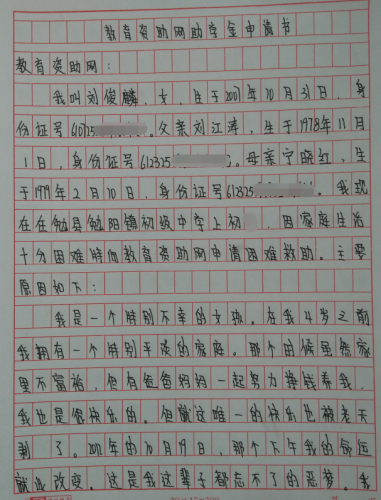 教育资助网助学金申请书
教育资助网：
我叫刘俊麟，女，生于2007年10月31日，身
份证号610725 。父亲刘江涛，生于1978年11月
1日，身份证号612325 。母亲宁晓红，生
于1979年2月10日，身份证号612325 。我现
在在勉县勉阳镇初级中学上初 ，因家庭生活
十分困难特向教育资助网申请困难救助。主要
原因如下：
我是一个特别不幸的女孩。在我4岁之前
我拥有一个特别平淡的家庭。那个时候虽然家
里不富裕，但有爸爸妈妈一起努力挣钱养我，
我也是很快乐的。但就这唯一的快乐也被老天
剥了。2012年的10月19日，那个下午我的命运
就此改变。这是我这辈子都忘不了的恶梦。我